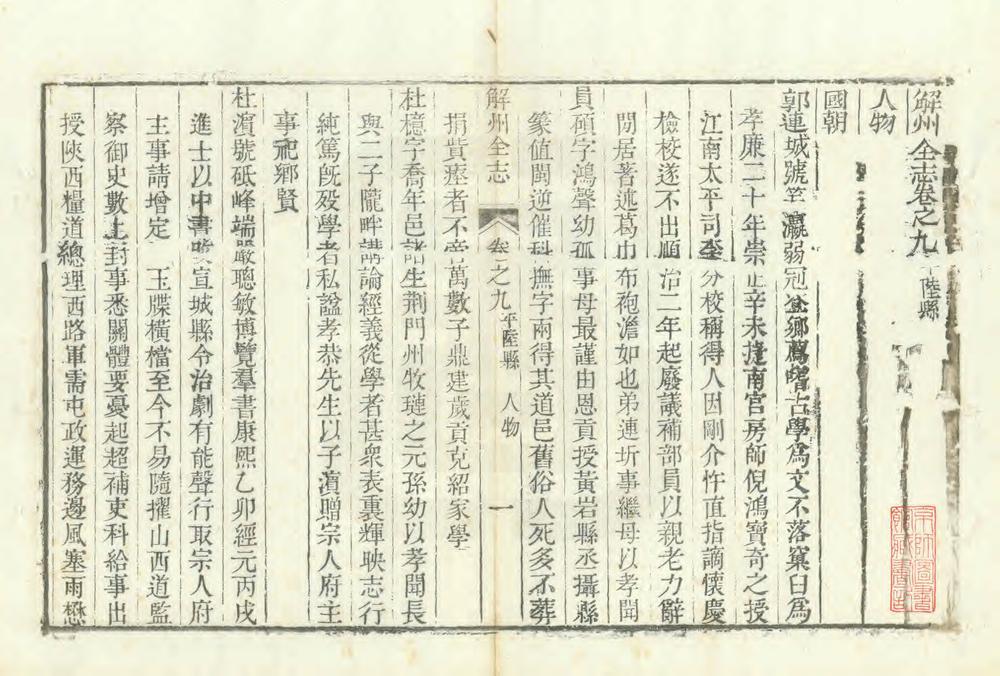 解州全志卷之九平陸縣
人物
國朝
郭連城號竺瀛弱冠登鄉薦嗜古學爲文不落窠臼爲
孝廉二十年崇正辛未捷南宮房師倪鴻寶奇之授
江南太平司李分校稱得人因剛介忤直指謫懷慶
檢校遂不出順治二年起廢議補部員以親老力辭
閒居著述葛巾布袍澹如也弟連圻事繼母以孝聞
員碩字鴻聲幼孤事母最謹由恩貢授黃岩縣丞攝縣
篆值閩逆催科撫字兩得其道邑舊俗人死多不葬
解州全志 卷之九平陸縣 人物 一
捐貲瘞者不啻萬數子鼎建歲貢克紹家學
杜檍字喬年邑諸生荆門州牧璉之元孫幼以孝聞長
與二子隴畔講論經義從學者甚衆表裏輝映志行
純篤旣歿學者私諡孝恭先生以子濱贈宗人府主
事祀鄉賢
杜濱號砥峰端嚴聰敏博覽羣書康熙乙卯經元丙戌
進士以中書改宣城縣令治劇有能聲行取宗人府
主事請增定 玉牒橫檔至今不易隨擢山西道監
察御史數上封事悉關體要憂起超補吏科給事出
授陝西糧道總理西路軍需屯政運務邊風塞雨懋